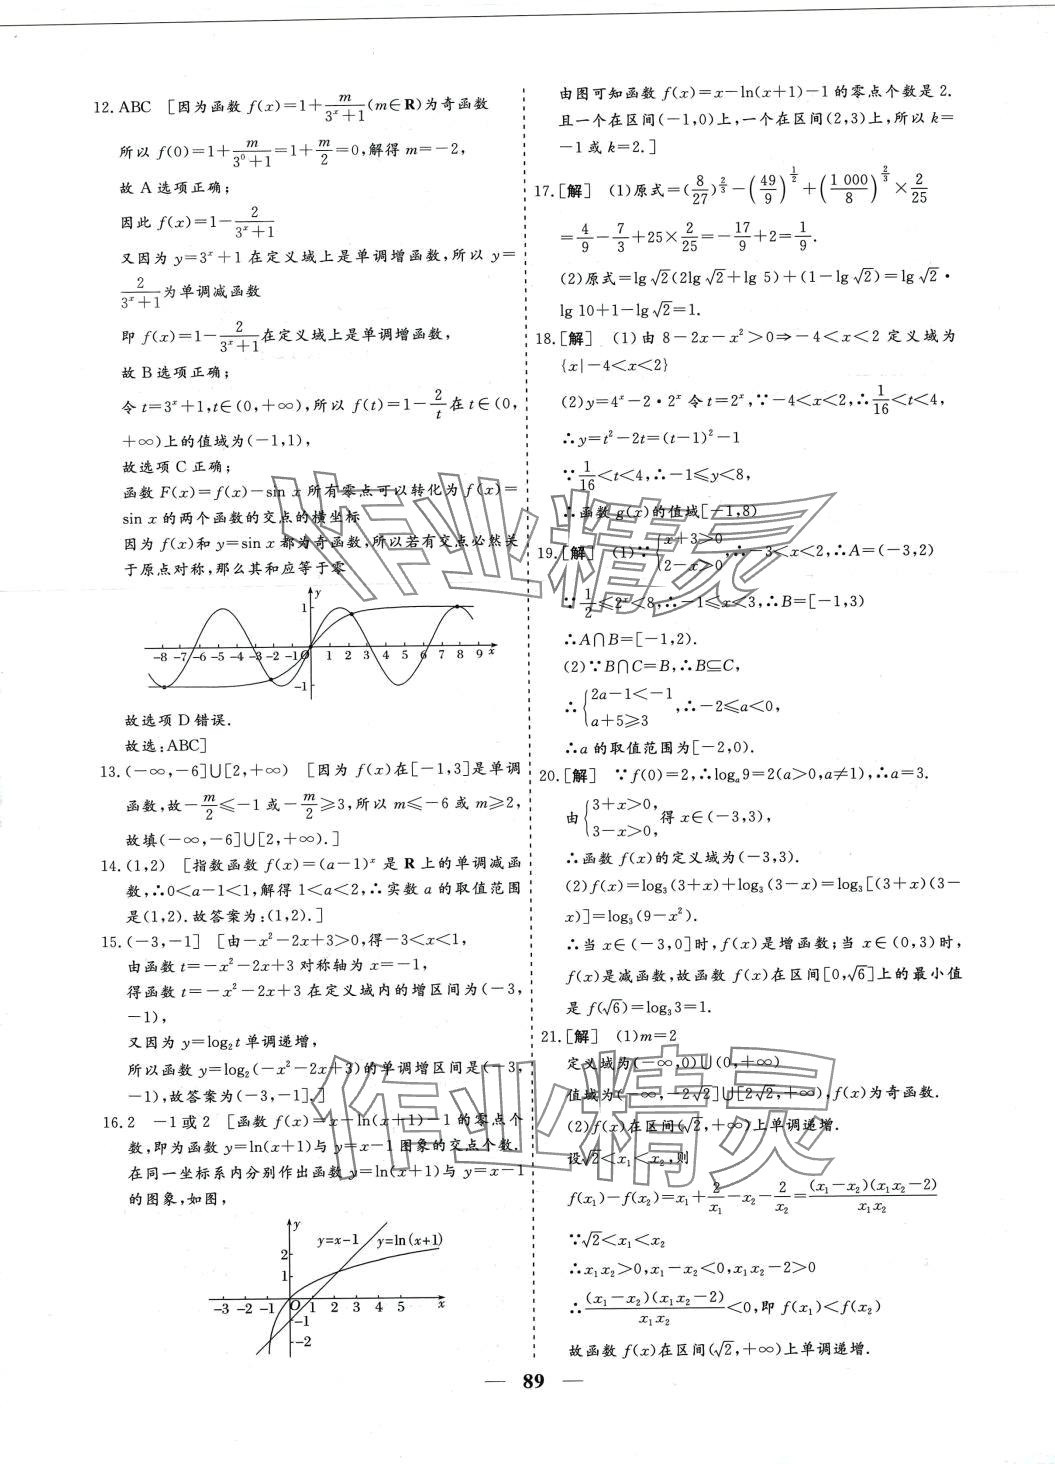 12. ABC　[因为函数 f(x)=1+m/(3^x+1)(m∈R)为奇函数
所以 f(0)=1+m/(3^0+1)=1+m/2=0,解得 m=-2,
故 A 选项正确;
因此 f(x)=1-2/(3^x+1)
又因为 y=3^x+1 在定义域上是单调增函数,所以 y=
2/(3^x+1)为单调减函数
即 f(x)=1-2/(3^x+1)在定义域上是单调增函数,
故 B 选项正确;
令 t=3^x+1,t∈(0,+∞),所以 f(t)=1-2/t 在 t∈(0,
+∞)上的值域为(-1,1),
故选项 C 正确;
函数 F(x)=f(x)-sin x 所有零点可以转化为 f(x)=
sin x 的两个函数的交点的横坐标
因为 f(x)和 y=sin x 都为奇函数,所以若有交点必然关
于原点对称,那么其和应等于零
y
1
-8 -7 -6 -5 -4 -3 -2 -1 O 1 2 3 4 5 6 7 8 9 x
-1
故选项 D 错误.
故选:ABC]
13. (-∞,-6]∪[2,+∞)　[因为 f(x)在[-1,3]是单调
函数,故-m/2≤-1 或-m/2≥3,所以 m≤-6 或 m≥2,
故填(-∞,-6]∪[2,+∞).]
14. (1,2)　[指数函数 f(x)=(a-1)^x 是 R 上的单调减函
数,∴0<a-1<1,解得 1<a<2,∴实数 a 的取值范围
是(1,2).故答案为:(1,2).]
15. (-3,-1]　[由-x²-2x+3>0,得-3<x<1,
由函数 t=-x²-2x+3 对称轴为 x=-1,
得函数 t=-x²-2x+3 在定义域内的增区间为(-3,
-1),
又因为 y=log₂t 单调递增,
所以函数 y=log₂(-x²-2x+3)的单调增区间是(-3,
-1),故答案为(-3,-1].]
16. 2　-1或2　[函数 f(x)=x-ln(x+1)-1 的零点个
数,即为函数 y=ln(x+1)与 y=x-1 图象的交点个数.
在同一坐标系内分别作出函数 y=ln(x+1)与 y=x-1
的图象,如图,
y
y=x-1 y=ln(x+1)
2
1
-3 -2 -1 O 1 2 3 4 5 x
-1
-2
由图可知函数 f(x)=x-ln(x+1)-1 的零点个数是 2.
且一个在区间(-1,0)上,一个在区间(2,3)上,所以 k=
-1 或 k=2.]
17. [解]　(1)原式=(8/27)^(2/3)-(49/9)^(1/2)+(1 000/8)^(2/3)×2/25
=4/9-7/3+25×2/25=-17/9+2=1/9.
(2)原式=lg √2(2lg √2+lg 5)+(1-lg √2)=lg √2·
lg 10+1-lg √2=1.
18. [解]　(1)由 8-2x-x²>0⇒-4<x<2 定义域为
{x|-4<x<2}
(2)y=4^x-2·2^x 令 t=2^x,∵-4<x<2,∴1/16<t<4,
∴y=t²-2t=(t-1)²-1
∵1/16<t<4,∴-1≤y<8,
∴函数 g(x)的值域[-1,8)
19. [解]　(1)∵{x+3>0 2-x>0,∴-3<x<2,∴A=(-3,2)
∵1/2≤2^x<8,∴-1≤x<3,∴B=[-1,3)
∴A∩B=[-1,2).
(2)∵B∩C=B,∴B⊆C,
∴{2a-1<-1 a+5≥3,∴-2≤a<0,
∴a 的取值范围为[-2,0).
20. [解]　∵f(0)=2,∴logₐ9=2(a>0,a≠1),∴a=3.
由{3+x>0, 3-x>0,得 x∈(-3,3),
∴函数 f(x)的定义域为(-3,3).
(2)f(x)=log₃(3+x)+log₃(3-x)=log₃[(3+x)(3-
x)]=log₃(9-x²).
∴当 x∈(-3,0]时,f(x)是增函数;当 x∈(0,3)时,
f(x)是减函数,故函数 f(x)在区间[0,√6]上的最小值
是 f(√6)=log₃3=1.
21. [解]　(1)m=2
定义域为(-∞,0)∪(0,+∞)
值域为(-∞,-2√2]∪[2√2,+∞),f(x)为奇函数.
(2)f(x)在区间(√2,+∞)上单调递增.
设√2<x₁<x₂,则
f(x₁)-f(x₂)=x₁+2/x₁-x₂-2/x₂=(x₁-x₂)(x₁x₂-2)/(x₁x₂)
∵√2<x₁<x₂
∴x₁x₂>0,x₁-x₂<0,x₁x₂-2>0
∴(x₁-x₂)(x₁x₂-2)/(x₁x₂)<0,即 f(x₁)<f(x₂)
故函数 f(x)在区间(√2,+∞)上单调递增.
— 89 —
作业精灵
作业精灵